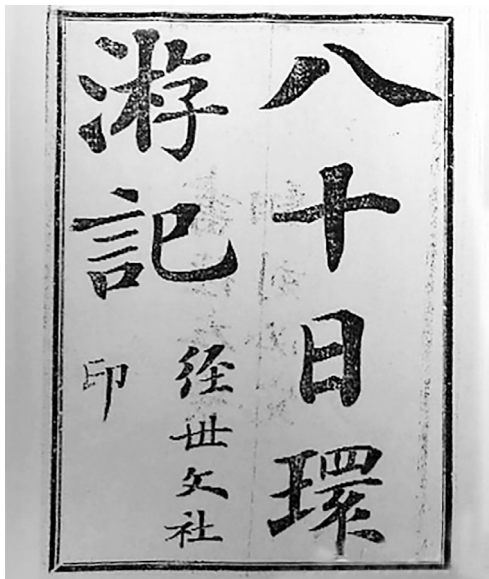 八十日環
游記
経世文社
印